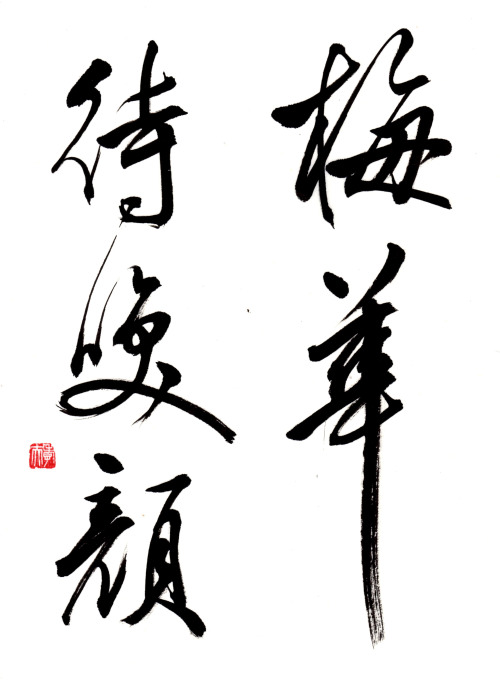 梅華
待顔